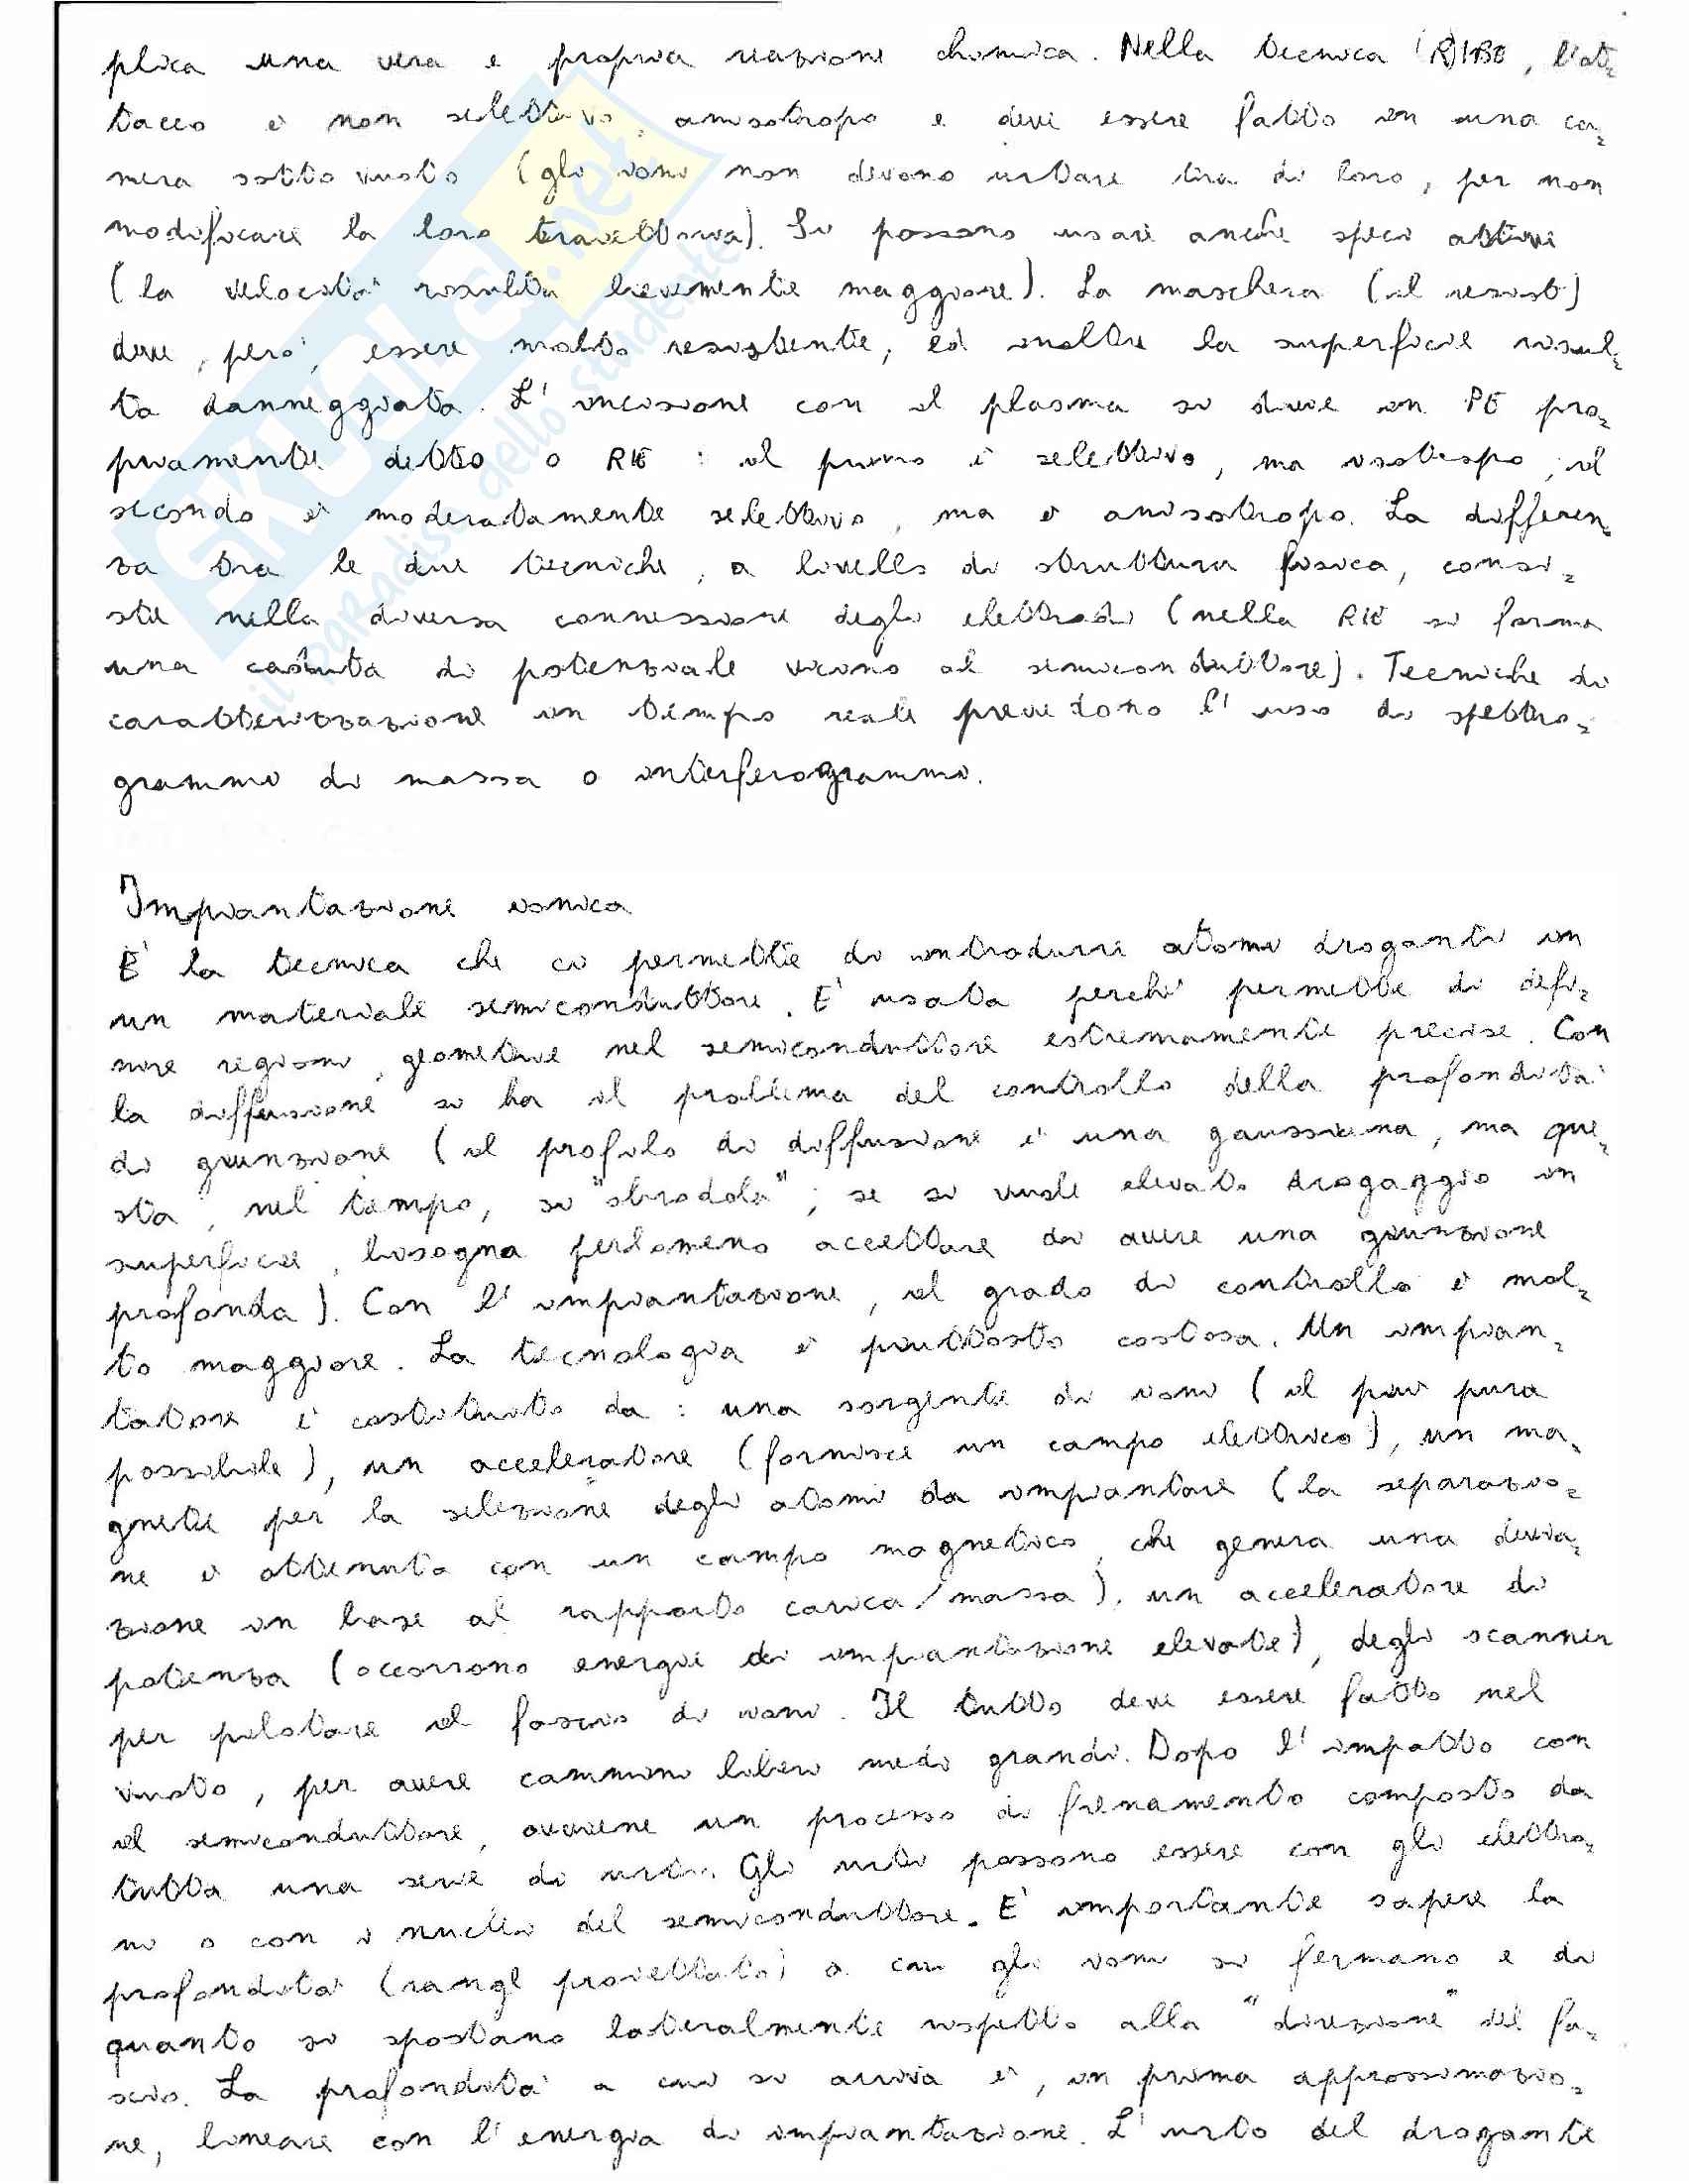 plica una vera e propria reazione chimica. Nella tecnica (R)IBE, l'at=
tacco è non selettivo, anisotropo e deve essere fatto in una ca=
mera sotto vuoto (gli ioni non devono urtare tra di loro, per non
modificare la loro traiettoria). Si possono usare anche speci attive
(la velocità risulta lievemente maggiore). La maschera (il resist)
deve, però, essere molto resistente, ed inoltre la superficie risul=
ta danneggiata. L'incisione con il plasma si divide in PE pro=
priamente detto o RIE : il primo è selettivo, ma isotropo; il
secondo è moderatamente selettivo, ma è anisotropo. La differen=
za tra le due tecniche, a livello di struttura fisica, consi=
ste nella diversa connessione degli elettrodi (nella RIE si forma
una caduta di potenziale vicino al semiconduttore). Tecniche di
caratterizzazione in tempo reale prevedono l'uso di spettro=
grammi di massa o interferogrammi.
Impiantazione ionica
E' la tecnica che ci permette di introdurre atomi droganti in
un materiale semiconduttore. E' usata perchè permette di defi=
nire regioni geometrie nel semiconduttore estremamente precise. Con
la diffusione si ha il problema del controllo della profondità
di giunzione (il profilo di diffusione è una gaussiana, ma que=
sta, nel tempo, si "sbrodola"; se si vuole elevato drogaggio in
superficie, bisogna perlomeno accettare di avere una giunzione
profonda). Con l'impiantazione, il grado di controllo è mol=
to maggiore. La tecnologia è piuttosto costosa. Un impian=
tatore è costituito da : una sorgente di ioni (il più pura
possibile), un acceleratore (fornisce un campo elettrico), un ma=
gnete per la selezione degli atomi da impiantare (la separazio=
ne è ottenuta con un campo magnetico, che genera una devia=
zione in base al rapporto carica/massa), un acceleratore di
potenza (occorrono energie di impiantazione elevate), degli scanner
per pilotare il fascio di ioni. Il tutto deve essere fatto nel
vuoto, per avere cammini liberi medi grandi. Dopo l'impatto con
il semiconduttore, avviene un processo di frenamento composto da
tutta una serie di urti. Gli urti possono essere con gli elettro=
ni o con i nuclei del semiconduttore. E' importante sapere la
profondità (range proiettato) a cui gli ioni si fermano e di
quanto si spostano lateralmente rispetto alla "direzione" del fa=
scio. La profondità a cui si arriva è, in prima approssimazio=
ne, lineare con l'energia di impiantazione. L'urto del drogante
SKUOLA.net
il paradiso dello studente